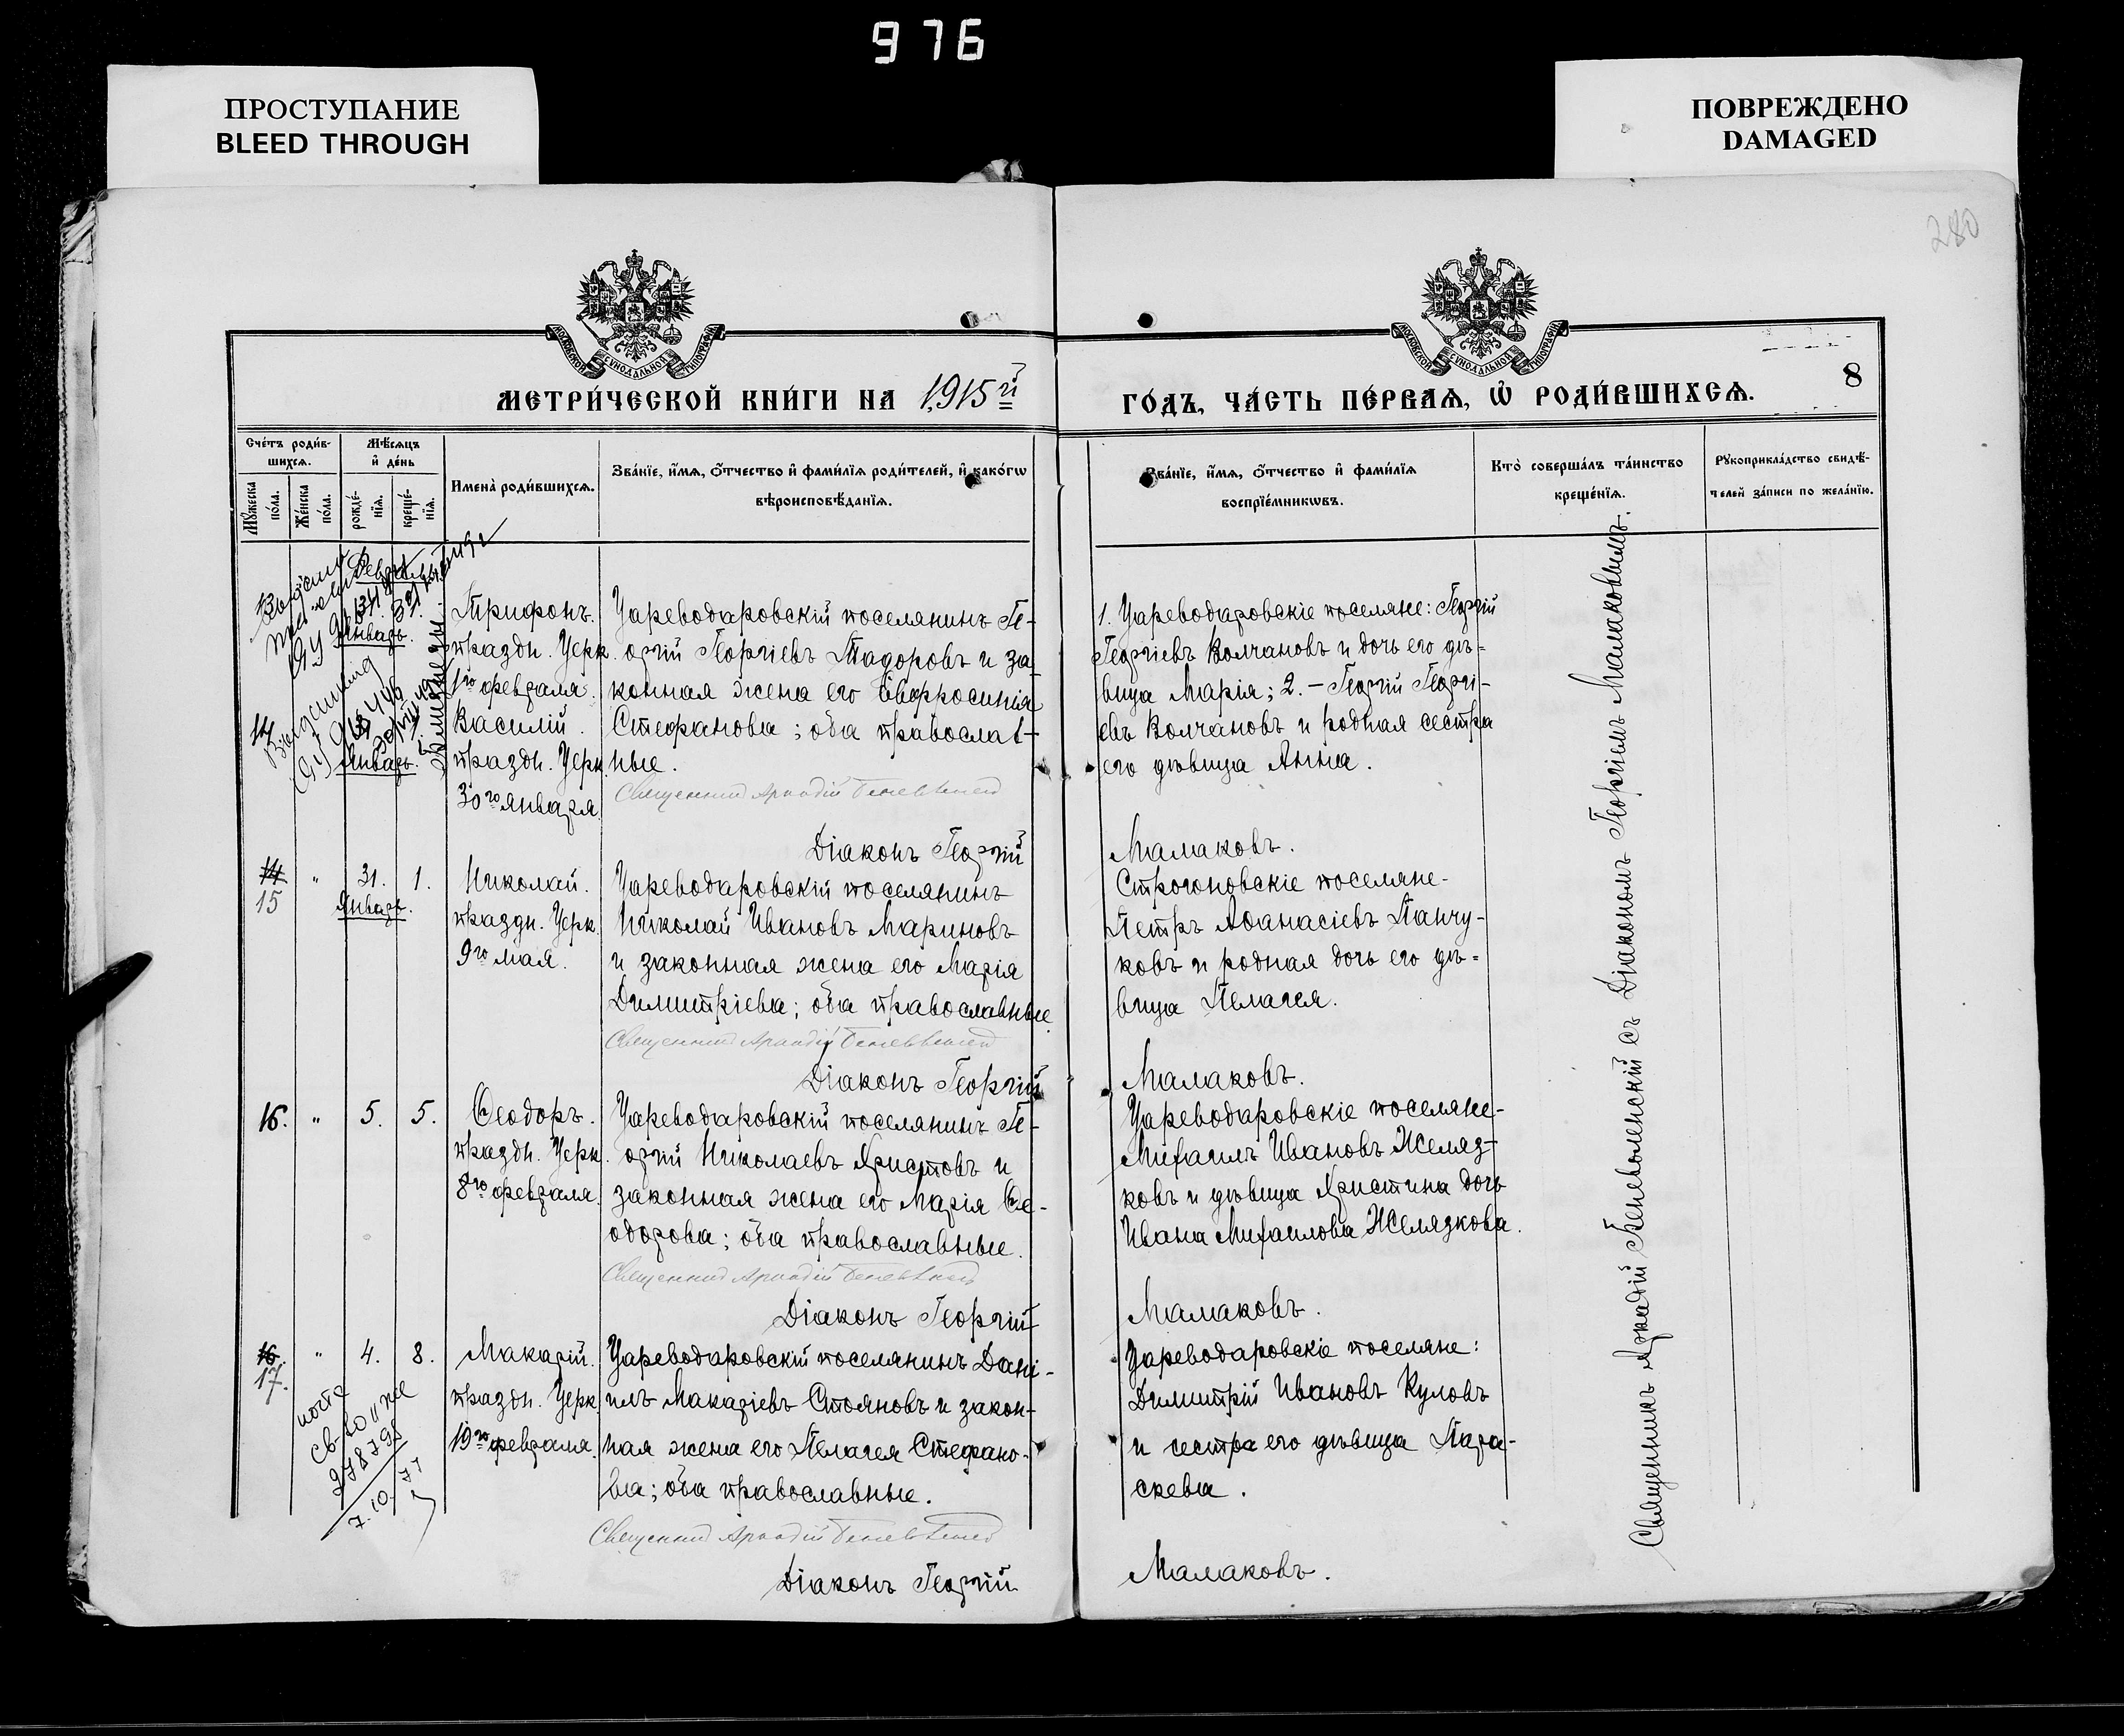 976
ПРОСТУПАНИЕ
BLEED THROUGH
ПОВРЕЖДЕНО
DAMAGED
280
МОСКОВСКОЙ СѴНОДАЛЬНОЙ ТИПОГРАФІИ
МОСКОВСКОЙ СѴНОДАЛЬНОЙ ТИПОГРАФІИ
МЕТРИ́ЧЕСКОЙ КНИ́ГИ НА 1915й
ГО́ДЪ, ЧА́СТЬ ПЕ́РВАѦ, Ѡ҆ РОДИ́ВШИХСѦ.
8
Сче́тъ роди́в-
шихсѧ.
Мѣ́сѧцъ
и҆ де́нь
Мꙋ́жеска
по́ла.
Же́нска
по́ла.
рожде́-
нїѧ.
креще́-
нїѧ.
И҆мена̀ роди́вшихсѧ.
Зва́нїе, и҆́мѧ, о҆́тчество и҆ фами́лїѧ роди́телей, и҆ како́гѡ
вѣроисповѣ́данїѧ.
Зва́нїе, и҆́мѧ, о҆́тчество и҆ фами́лїѧ
воспрїе́мникѡвъ.
Кто̀ соверша́лъ та́инство
креще́нїѧ.
Рꙋкоприкла́дство свидѣ́-
телей за́писи по жела́нїю.
Январь.
14
Январь.
Близнецы.
Трифонъ.
праздн. Церк.
1го февраля.
Василій.
праздн. Церк.
30го января
Цареводаровскій поселянинъ Ге-
оргій Георгіевъ Тодоровъ и за
конная жена его Евфросинія
Стефановна; оба православ-
ные.
Священник Аркадій Беневоленский
Діаконъ Георгій
1. Цареводаровскіе поселяне: Георгій
Георгіевъ Волчановъ и дочь его дѣ-
вица Марія; 2. – Георгій Георгі-
евъ Волчановъ и родная сестра
его дѣвица Анна.
Малаковъ.
14
15
"
31.
1.
Январь.
Николай.
праздн. Церк.
9го мая.
Цареводаровскій поселянинъ
Николай Ивановъ Мариновъ
и законная жена его Марія
Димитріева; оба православные
Священник Аркадій Беневоленский
Діаконъ Георгій
Строгоновскіе поселяне-
Петръ Аѳанасіевъ Панчу-
ковъ и родная дочь его дѣ-
вица Пелагея.
Малаковъ.
16.
"
5.
5.
Ѳеодоръ.
праздн. Церк.
8го февраля.
Цареводаровскій поселянинъ Ге-
оргій Николаевъ Христовъ и
законная жена его Марія Ѳе-
одорова; оба православные.
Священник Аркадій Беневоленский
Діаконъ Георгій
Цареводаровскіе поселяне-
Михаилъ Ивановъ Желяз-
ковъ и дѣвица Христина дочь
Ивана Михаилова Желязкова.
Малаковъ.
16
17.
"
4.
8.
278795
7.10.77
Макарій.
праздн. Церк.
19го февраля.
Цареводаровскій поселянинъ Дані-
илъ Макаріевъ Стояновъ и закон-
ная жена его Пелагея Стефано-
ва; оба православные.
Священник Аркадій Беневоленский
Діаконъ Георгій
Цареводаровскіе поселяне:
Димитрій Ивановъ Куловъ
и сестра его дѣвица Пара-
скева.
Малаковъ.
Священникъ Аркадій Беневоленскій съ Діакономъ Георгіемъ Малаковымъ.